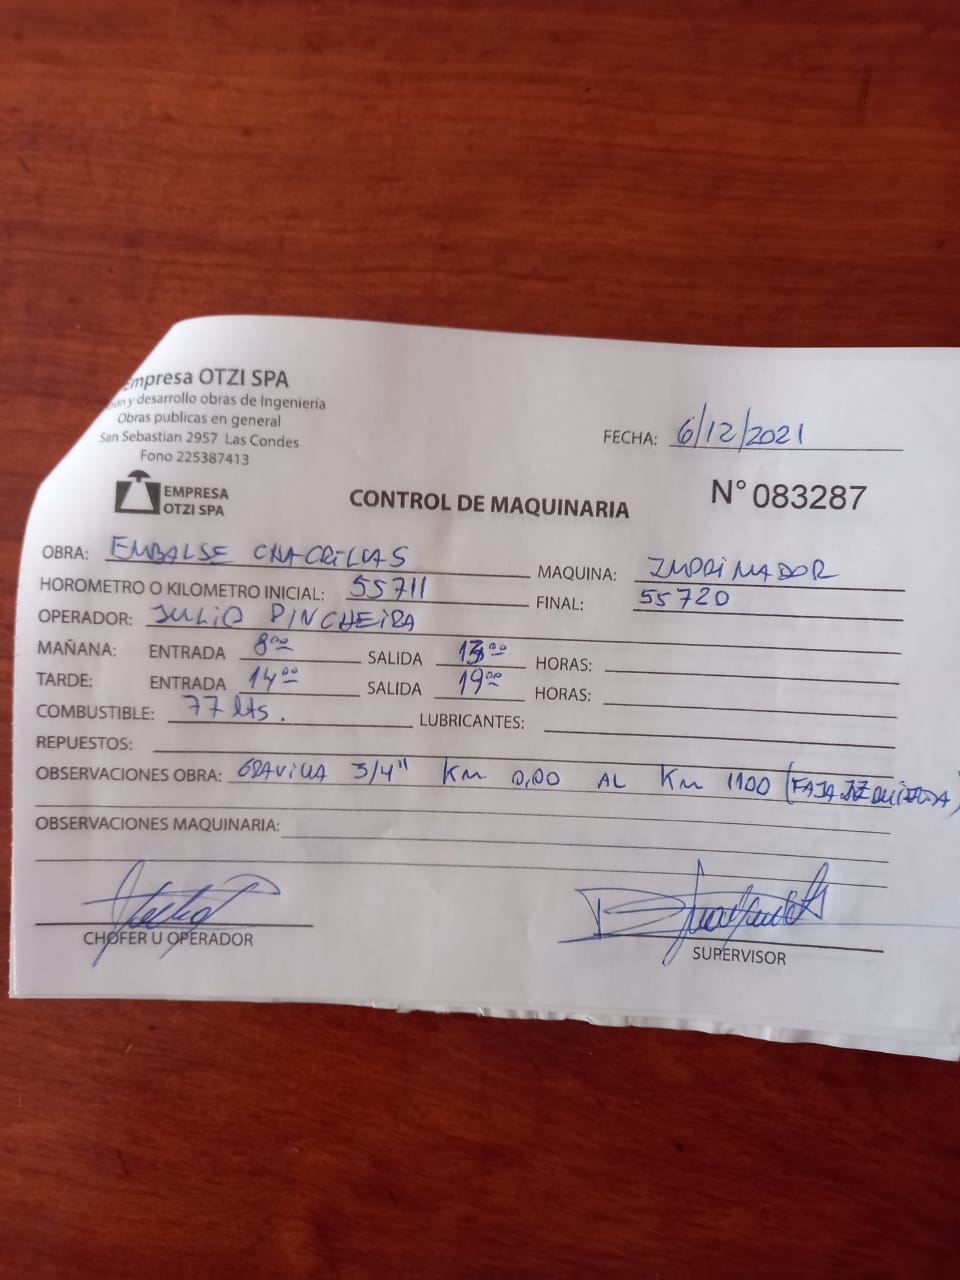 Empresa OTZI SPA
y desarrollo obras de Ingenieria
Obras publicas en general
San Sebastian 2957 Las Condes
Fono 225387413
EMPRESA
OTZI SPA
CONTROL DE MAQUINARIA
FECHA: 6/12/2021
N° 083287
OBRA: EMBALSE CHACRILLAS MAQUINA: IMPRIMADOR
HOROMETRO O KILOMETRO INICIAL: 55711 FINAL: 55720
OPERADOR: JULIO PINCHEIRA
MAÑANA: ENTRADA 8:00 SALIDA 13:00 HORAS:
TARDE: ENTRADA 14:00 SALIDA 19:00 HORAS:
COMBUSTIBLE: 77 lts. LUBRICANTES:
REPUESTOS:
OBSERVACIONES OBRA: GRAVILLA 3/4" Km 0,00 AL Km 1100 (FAJA IZQUIERDA)
OBSERVACIONES MAQUINARIA:
CHOFER U OPERADOR
SUPERVISOR